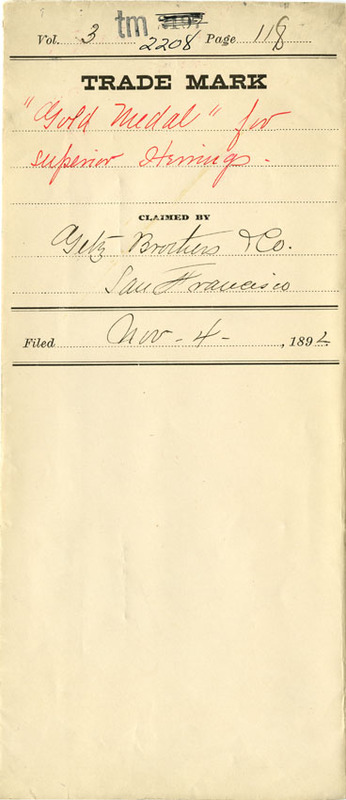 tm
Vol. 3 2208 Page 118
TRADE MARK
"Gold Medal" for
superior Herrings.
CLAIMED BY
Getz Brothers & Co.
San Francisco
Filed Nov - 4 - , 1892